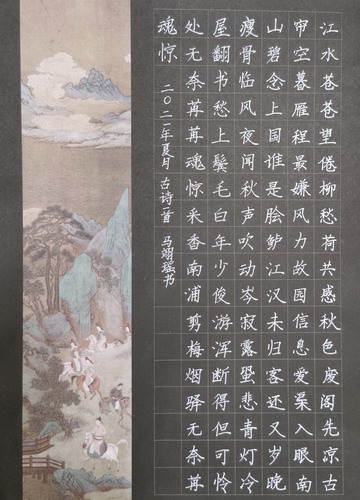 江水苍苍望倦柳愁荷共感秋色废阁先凉古
帘空暮雁程最嫌风力故园信息爱渠入眼南
山碧念上国谁是脍鲈江汉未归客还又岁晚
瘦骨临风夜闻秋声吹动岑寂露蛩悲青灯冷
屋翻书愁上鬓毛白年少俊游浑断得但可怜
处无奈苒苒魂惊采香南浦剪梅烟驿无奈苒
魂惊
二〇二一年夏月 古诗一首 马翊瑶书